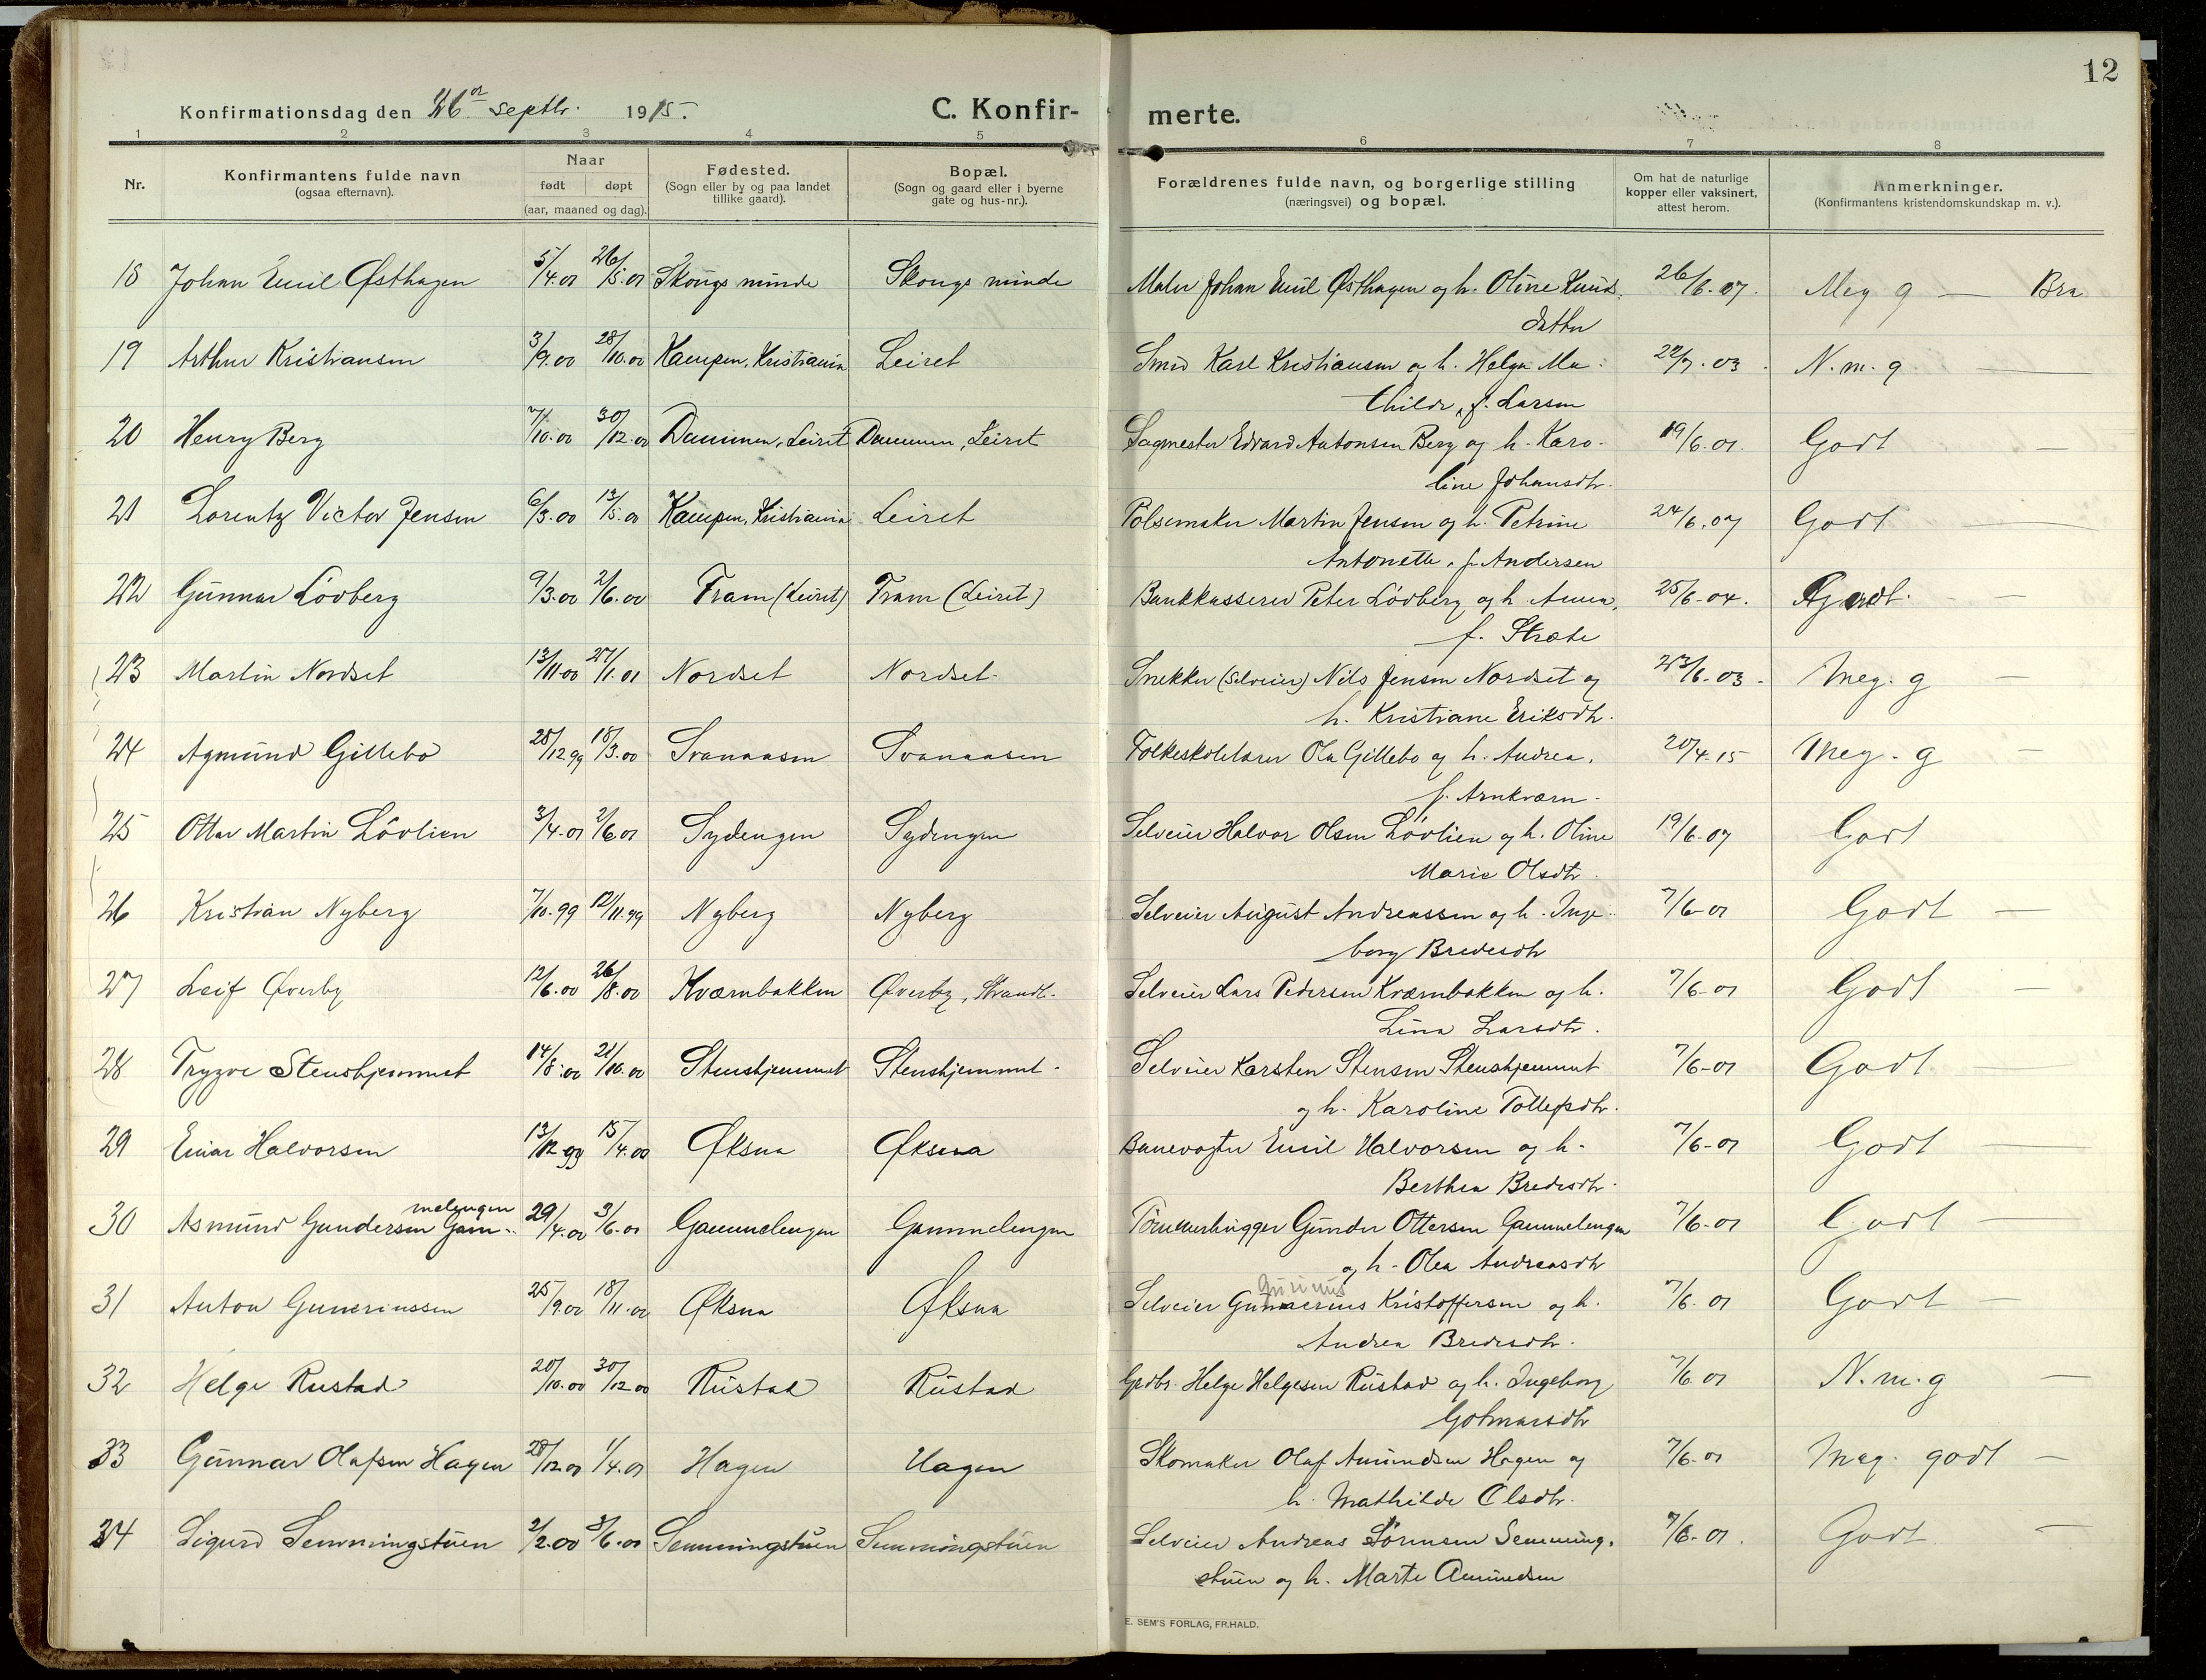 12
Konfirmationsdag den 26de septbr. 1915.
C. Konfir- merte.
1 2 3 4 5 6 7 8
Nr.
Konfirmantens fulde navn
(ogsaa efternavn).
Naar
født døpt
(aar, maaned og dag).
Fødested.
(Sogn eller by og paa landet
tillike gaard).
Bopæl.
(Sogn og gaard eller i byerne
gate og hus-nr.).
Forældrenes fulde navn, og borgerlige stilling
(næringsvei) og bopæl.
Om hat de naturlige
kopper eller vaksinert,
attest herom.
Anmerkninger.
(Konfirmantens kristendomskundskap m. v.).
18 Johan Emil Østhagen 5/4.01 26/5.01 Skougs minde Skougs minde Maler Johan Emil Østhagen og h. Oline Knuds 26/6.07. Meg g — Bra
datter
19 Arthur Kristiansen 3/9.00 28/10.00 Kampen, Kristiania Leiret Smed Karl Kristiansen og h. Helga Ma- 22/7.03. N. m. g.
thilde, f. Larsen
20 Henry Berg 7/10.00 30/12.00 Dammen, Leiret Dammen, Leiret Sagmester Edvard Antonsen Berg og h. Karo- 19/6.01. Godt —
line Johansdtr.
21 Lorentz Victor Jensen 6/3.00 13/5.00 Kampen, Kristiania Leiret Pølsemaker Martin Jensen og h. Petrine 24/6.07 Godt —
Antonette, f. Andersen
22 Gunnar Lövberg 9/3.00 2/6.00 Fram (Leiret) Fram (Leiret) Bankkasserer Peter Lövberg og h. Anna, 25/6-04. Godt. —
f. Stræte
23 Martin Nordset 13/11.00 27/1.01 Nordset Nordset Snekker (Selveier) Nils Jensen Nordset og 23/6-03. Meg. g —
h. Kristiane Eriksdtr.
24 Agmund Gillebo 28/12.99 18/3.00 Svanaasen Svanaasen Folkeskolelærer Ola Gillebo og h. Andrea, 20/4.15 Meg. g —
f. Arnkværn
25 Ottar Martin Lövlien 3/4.01 2/6.01 Sydengen Sydengen Selveier Halvor Olsen Lövlien og h. Oline 19/6-07 Godt
Marie Olsdtr.
26 Kristian Nyberg 7/10.99 12/11.99 Nyberg Nyberg Selveier August Andreassen og h. Inge- 7/6-01 Godt —
borg Bredesdtr
27 Leif Øverby 12/6.00 26/8.00 Kværnbakken Øverby, Strandb. Selveier Lars Pedersen Kværnbakken og h. 7/6-01 Godt —
Lina Larsdtr.
28 Trygve Stenshjemmet 14/8.00 21/10.00 Stenshjemmet Stenshjemmet Selveier Karsten Stensen Stenshjemmet 7/6-01 Godt —
og h. Karoline Tollefsdtr.
29 Einar Halvorsen 13/12.99 15/4.00 Øksna Øksna Banevogter Emil Halvorsen og h. 7/6-01 Godt —
Berthea Bredesdtr.
melengen
30 Asmund Gundersen Gam- 29/4.00 3/6.01 Gammelengen Gammelengen Tömmerhugger Gunder Ottersen Gammelengen 7/6-01 Godt —
og h. Olea Andreasdtr
31 Anton Gunneriussen 25/9.00 18/11.00 Øksna Øksna Selveier Gunnerius Kristoffersen og h. 7/6.01 Godt —
Andrea Bredesdtr.
32 Helge Rustad 20/10.00 30/12.00 Rustad Rustad Gdbr. Helge Helgesen Rustad og h. Ingeborg 7/6.01 N. m. g —
Golmarsdtr
33 Gunnar Olafsen Hagen 28/12.00 1/4.01 Hagen Hagen Skomaker Olaf Amundsen Hagen og 7/6.01 Meg. godt —
h. Mathilde Olsdtr.
34 Sigurd Semmingstuen 2/2.00 3/6.01 Semmingstuen Semmingstuen Selveier Andreas Sörensen Semming- 7/6-01. Godt —
stuen og h. Marte Amundsen
E. SEM'S FORLAG, FR.HALD.